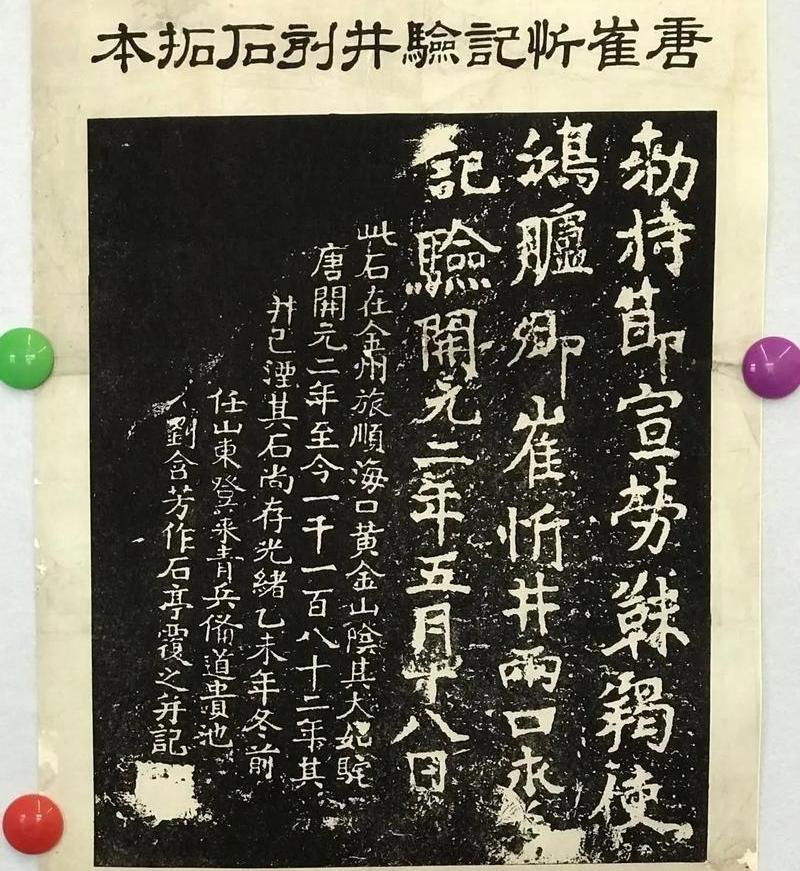 唐崔忻記驗井刻石拓本
勅持莭宣勞靺羯使
鴻臚卿崔忻井兩口永爲
記驗開元二年五月十八日
此石在金州旅順海口黃金山陰其大如駝
唐開元二年至今一千一百八十二年其
井已湮其石尚存光緒乙未年冬前
任山東登萊青兵備道貴池
劉含芳作石亭覆之幷記